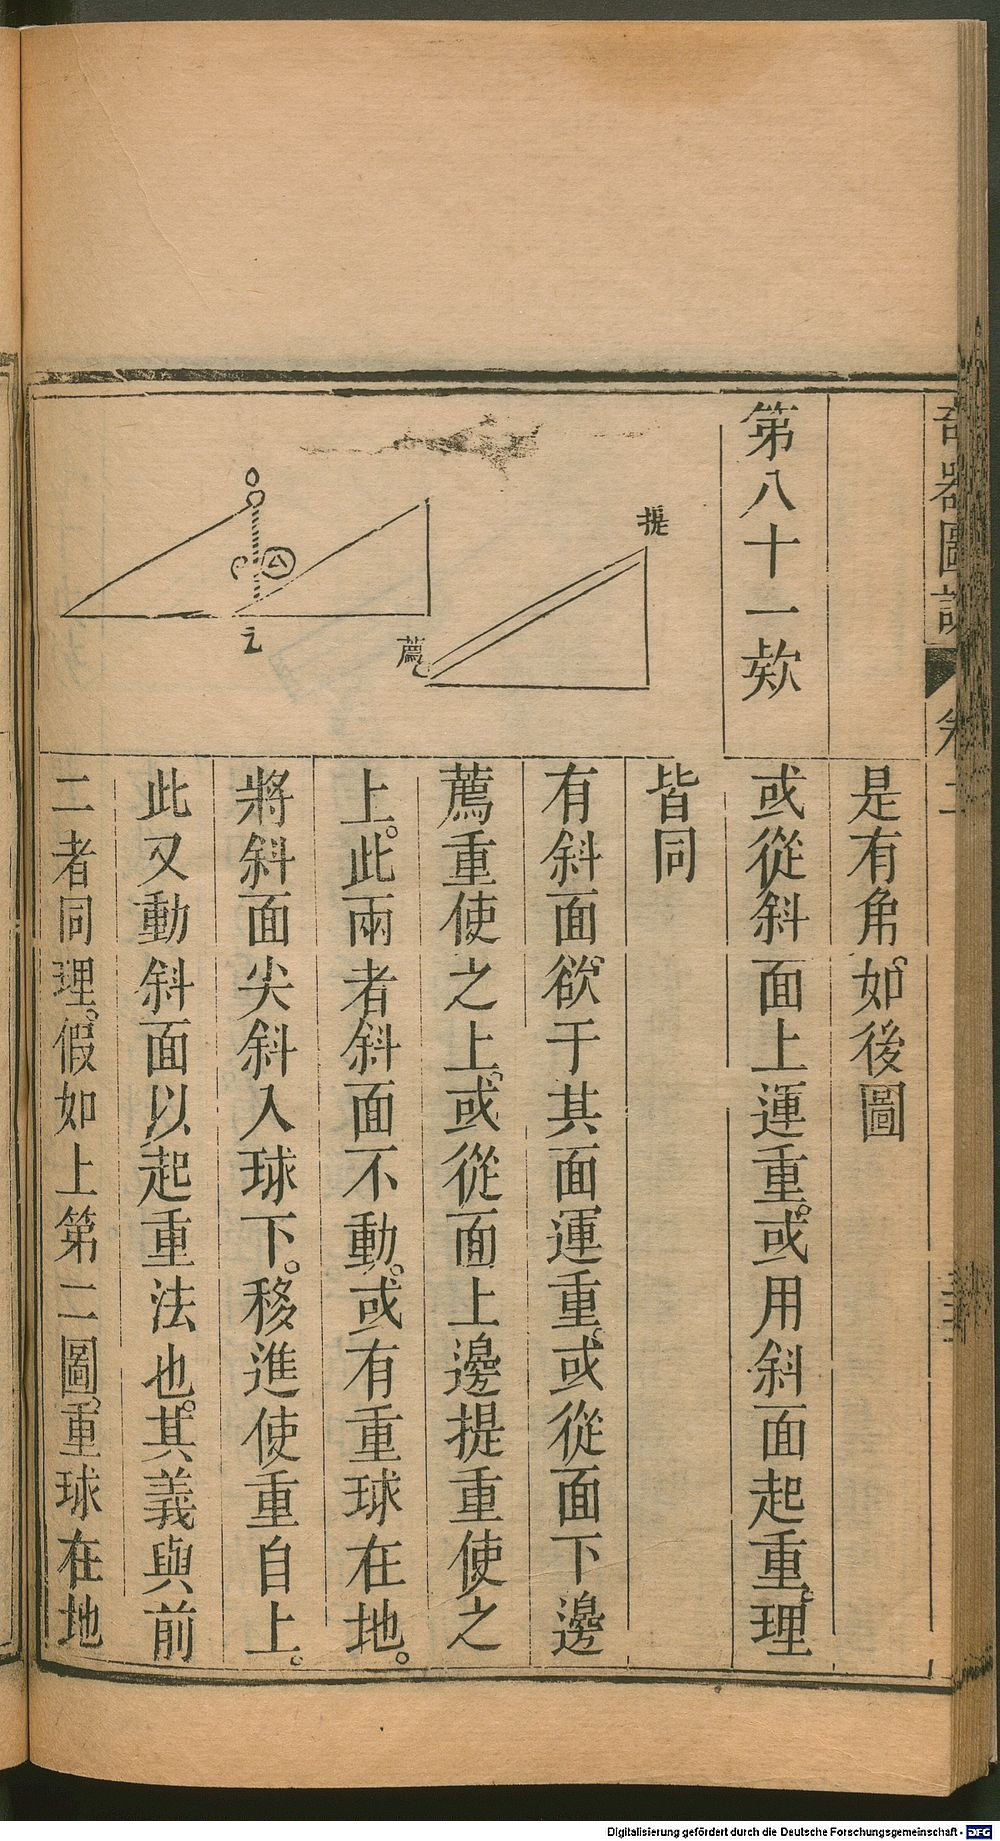 是有角。如後圖
第八十一欵
或從斜面上運重。或用斜面起重。理
皆同
有斜面。欲于其面運重。或從面下邊
薦重使之上。或從面上邊提重使之
上。此兩者斜面不動。或有重球在地。
將斜面尖斜入球下。移進使重自上。
此又動斜面以起重法也。其義與前
二者同理。假如上第二圖。重球在地
提
薦
Digitalisierung gefördert durch die Deutsche Forschungsgemeinschaft - DFG